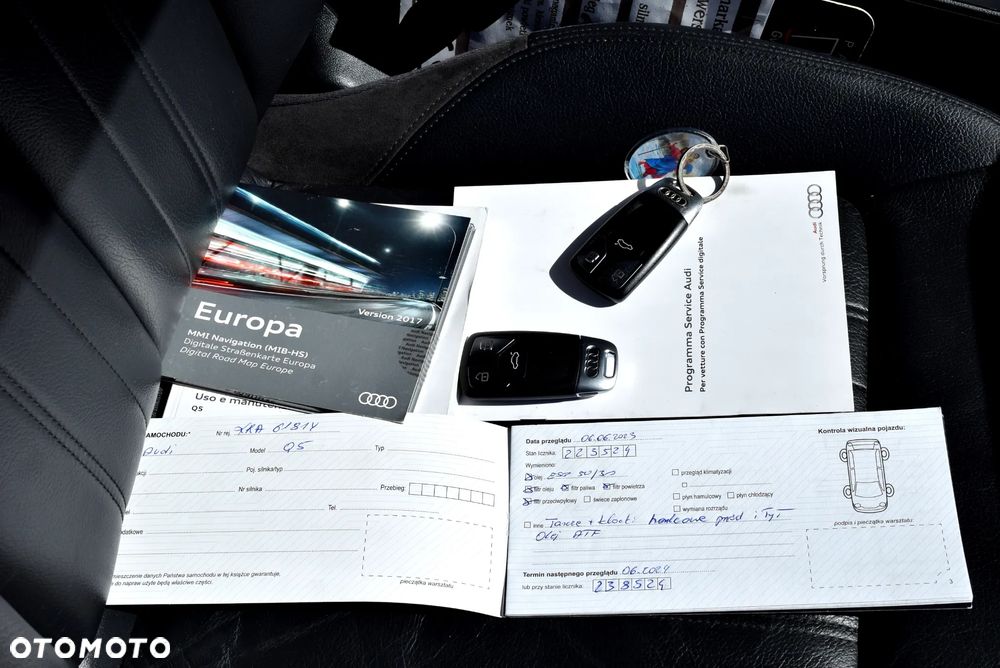 Europa
Version 2017
MMI Navigation (MIB-HS)
Digitale Straßenkarte Europa
Digital Road Map Europe
Programma Service Audi
Per vetture con Programma Service digitale
Audi
Vorsprung durch Technik
Uso e manuten
Q5
SAMOCHODU:*
Nr rej.
Audi
Model Q5
Typ
Poj. silnika/typ
Nr silnika
Przebieg:
Tel.
mieszczenie danych Państwa samochodu w tej książce gwarantuje,
do napraw użyte będą właściwe części.
pieczątka warsztatu
Data przeglądu 06.06.2023
Stan licznika: 223524
Wymieniono:
olej
filtr oleju filtr paliwa filtr powietrza
filtr przeciwpyłowy świece zapłonowe
przegląd klimatyzacji
płyn hamulcowy płyn chłodzący
wymiana rozrządu
inne Tarcze + klocki hamcowe przód i Tył
Olej ATF
Termin następnego przeglądu 06.2024
lub przy stanie licznika: 238524
Kontrola wizualna pojazdu:
podpis i pieczątka warsztatu:
3
OTOMOTO